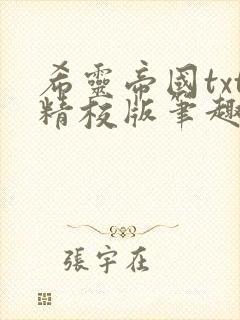 希靈帝國txt
精校版筆趣
張宇在